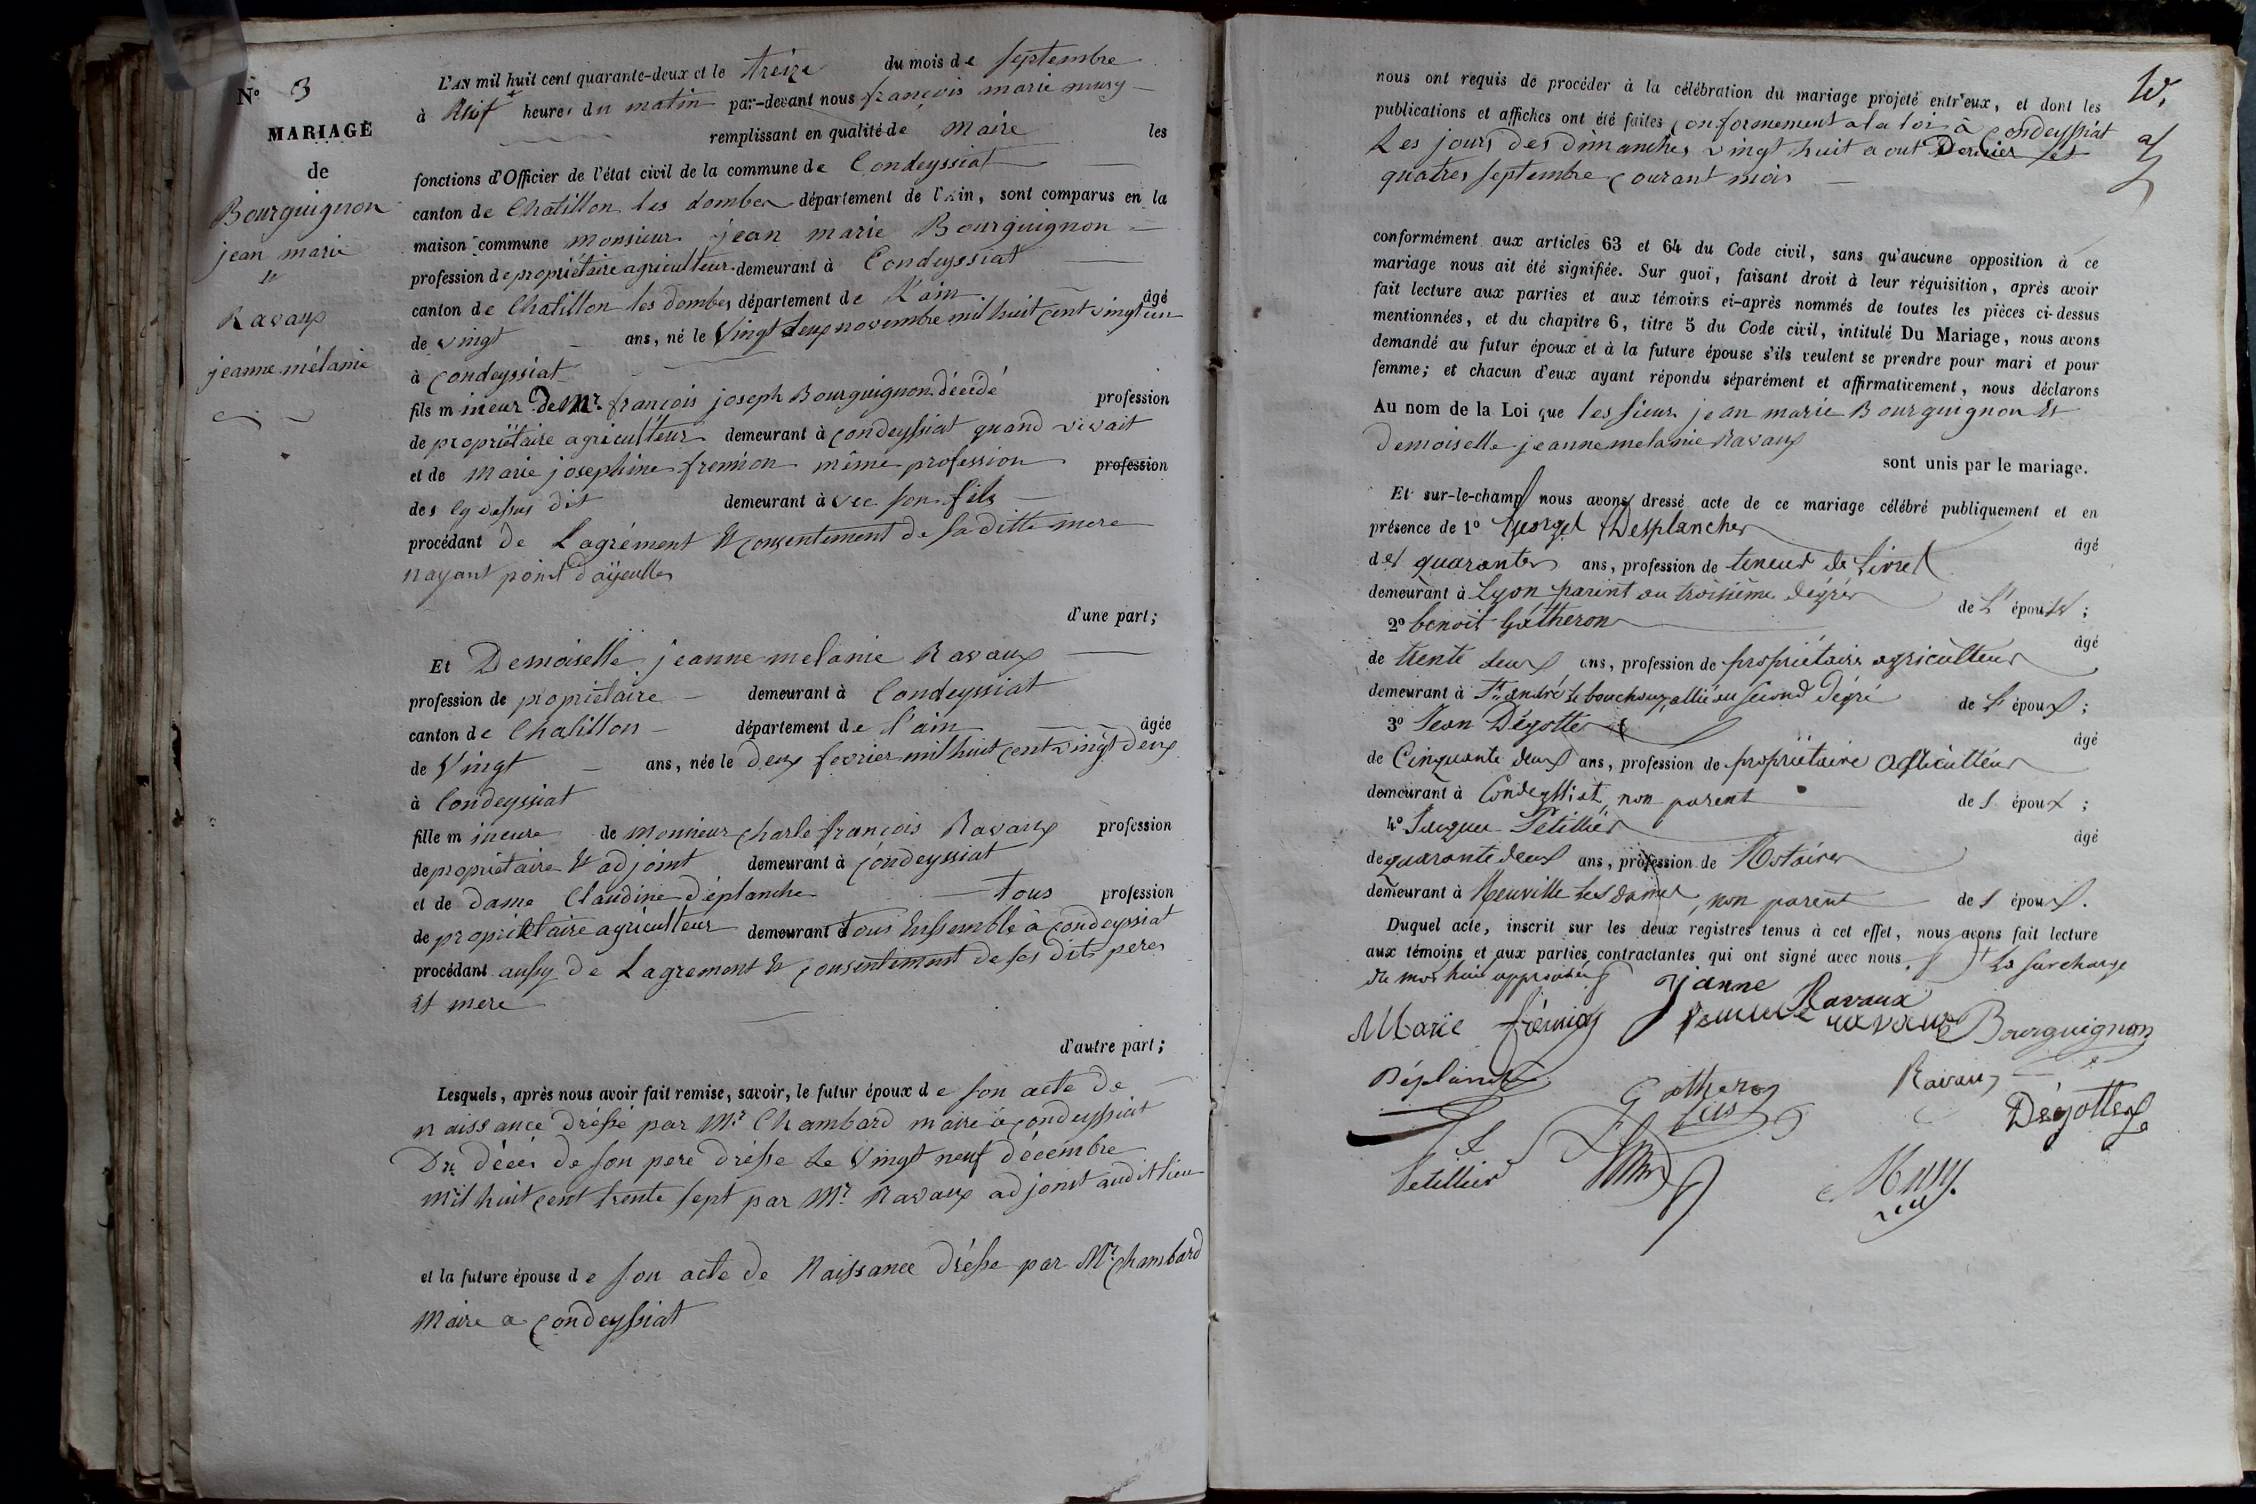 N° 3
MARIAGE
de
Bourguignon
jean marie
et
Ravaux
jeanne mélanie
L'AN mil huit cent quarante-deux et le treize du mois de septembre
à heures du matin par-devant nous françois marie mury
remplissant en qualité de maire les
fonctions d'Officier de l'état civil de la commune de Condeyssiat
canton de Chatillon les dombes département de l'Ain, sont comparus en la
maison commune monsieur jean marie Bourguignon
profession de propriétaire agriculteur demeurant à Condeyssiat
canton de Chatillon les dombes département de L'ain âgé
de vingt ans, né le Vingt deux novembre mil huit cent vingt un
à Condeyssiat
fils mineur de Mr. françois joseph Bourguignon décédé profession
de propriétaire agriculteur demeurant à Condeyssiat quand vivait
et de marie josephine fremion même profession profession
des cy dessus dit demeurant avec son fils
procédant de L'agrément et consentement de sa ditte mere
nayant point d'ayeulles
d'une part;
Et Demoiselle jeanne melanie Ravaux
profession de propriétaire demeurant à Condeyssiat
canton de Chatillon département de l'ain âgée
de Vingt ans, née le deux fevrier mil huit cent vingt deux
à Condeyssiat
fille mineure de monsieur charle françois Ravaux profession
de propriétaire et adjoint demeurant à condeyssiat
et de dame Claudine déplanche tous profession
de propriétaire agriculteur demeurant tous Enssemble à condeyssiat
procédant aussy de Lagrement et consentement de ses dits peres
et mere
d'autre part;
Lesquels, après nous avoir fait remise, savoir, le futur époux de son acte de
naissance dréssé par Mr. Chambard maire à condeyssiat
Du décés de son pere drésse Le Vingt neuf décembre
mil huit cent trente sept par Mr. Ravaux adjoint audit lieu
et la future épouse de son acte de Naissance drésse par Mr. Chambard
Maire a Condeyssiat
nous ont requis de procéder à la célébration du mariage projeté entr'eux, et dont les
publications et affiches ont été faites conformement a la loi à Condeyssiat
Les jours des dimanches vingt huit aout Dernier et
quatres septembre courant mois
conformément aux articles 63 et 64 du Code civil, sans qu'aucune opposition à ce
mariage nous ait été signifiée. Sur quoi, faisant droit à leur réquisition, après avoir
fait lecture aux parties et aux témoins ci-après nommés de toutes les pièces ci-dessus
mentionnées, et du chapitre 6, titre 5 du Code civil, intitulé Du Mariage, nous avons
demandé au futur époux et à la future épouse s'ils veulent se prendre pour mari et pour
femme; et chacun d'eux ayant répondu séparément et affirmativement, nous déclarons
Au nom de la Loi que les sieur jean marie Bourguignon Et
demoiselle jeanne melanie Ravaux
sont unis par le mariage.
Et sur-le-champ nous avons dressé acte de ce mariage célébré publiquement et en
présence de 1° Georges Desplanches
âgé
de quarante ans, profession de teneur de Livres
demeurant à Lyon parent au troisième dégré de L'épouse;
2° benoit Gatheron
âgé
de trente deux ans, profession de propriétaire agriculteur
demeurant à St. andré le bouchoux, allié au second dégré de l'époux;
3° Jean Dégotte
âgé
de Cinquante deux ans, profession de propriétaire agriculteur
demeurant à Condeyssiat, non parent des époux;
4° Jacques Petillier
âgé
de quarante deux ans, profession de Notaire
demeurant à Neuville les dames, non parent des époux.
Duquel acte, inscrit sur les deux registres tenus à cet effet, nous avons fait lecture
aux témoins et aux parties contractantes qui ont signé avec nous. La surcharge
du mot huit approuvée
Marie frémion
janne Ravaux
femme ravaux
Bourguignon
Déplanche
Gatheron
Ravaux
Dégottex
Petillier
Mury